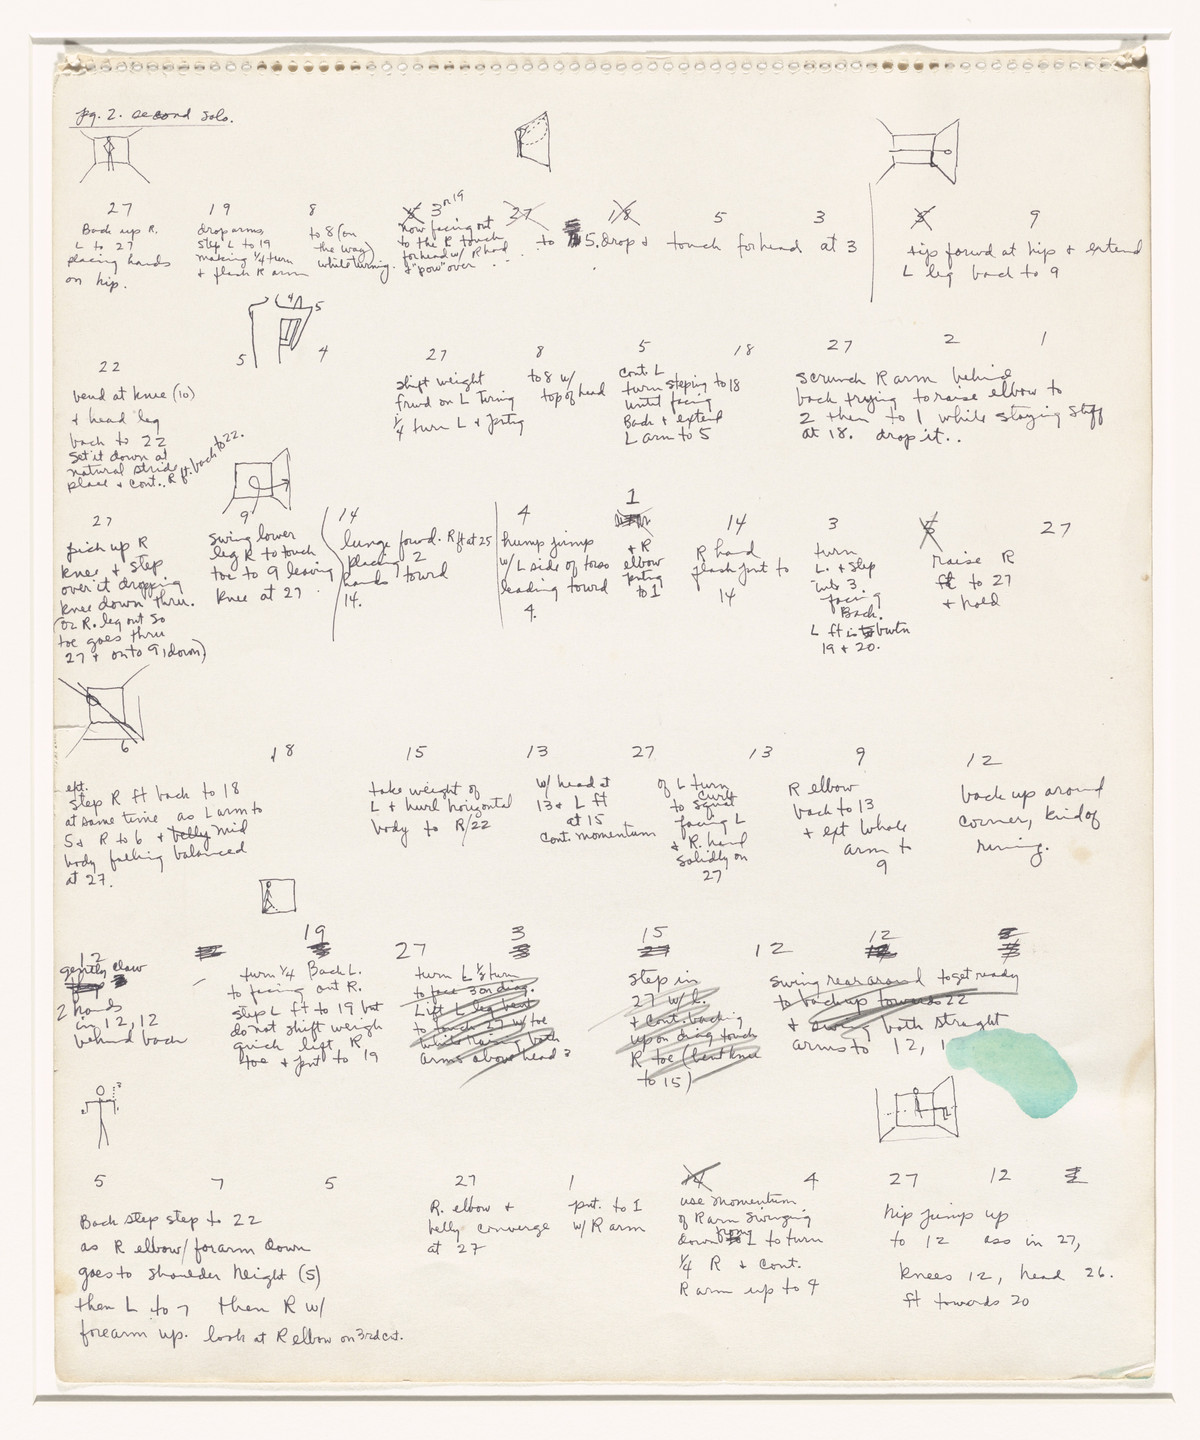 pg. 2. second solo.
27 19 8 3 or 19 27 18 5 3 5 9
Back up R.
L to 27
placing hands
on hip.
drop arms
step L to 19
making 1/4 turn
+ flash R arm
to 8 (on
the way)
while turning.
now facing out
to the R touch
forhead w/ R hand
+ "pow" over . . .
to 5. drop + touch forhead at 3
tip forwd at hip + extend
L leg back to 9
4 5
5 4
22 27 8 5 18 27 2 1
bend at knee (10)
+ head leg
back to 22
set it down at
natural stride
place + cont.. R ft. back to 22.
shift weight
frwd on L turing
1/4 turn L + jrtig
to 8 w/
top of head
cont. L
turn steping to 18
until facing
Back + extend
L arm to 5
scrunch R arm behind
back trying to raise elbow to
2 then to 1 while staying stiff
at 18. drop it..
27 9 14 4 1 14 3 5 27
pick up R
knee + step
over it dropping
knee down thru.
(or R. leg out so
toe goes thru
27 + onto 9, down)
swing lower
leg R to touch
toe to 9 leaving
knee at 27.
lunge fowrd. R ft at 25
placing 2
hands towrd
14.
hump jump
w/ L side of torso
leading towrd
4.
+ R
elbow
jrtig
to 1
R hand
flash jnt to
14
turn
L. + step
into 3.
facing
Back.
L ft is bwtn
19 + 20.
raise R
ft to 27
+ hold
6
18 15 13 27 13 9 12
ext.
step R ft back to 18
at same time as L arm to
5 + R to 6 + belly mid
body falling balanced
at 27.
take weight of
L + hurl horizontal
body to R/22
w/ head at
13 + L ft
at 15
cont. momentum
of L turn
curl
to squat
facing L
+ R. hand
solidly on
27
R elbow
back to 13
+ ext whole
arm to
9
back up around
corner, kind of
runing.
12 19 27 3 15 12 12
gently claw
2 hands
in 12, 12
behind back
turn 1/4 Back L.
to facing out R.
step L ft to 19 but
do not shift weigh
quick lift R
toe + jnt to 19
turn L 1/8 turn
to face 3 on diag.
Lift L leg bent
to touch 27 w/ toe
while raising both
arms above head 3
step in
27 w/ L.
+ cont. backing
up on diag touch
R toe (bent knee
to 15)
swing rear around to get ready
to back up towards 22
+ swing both straight
arms to 12, 1
5 7 5 27 1 14 4 27 12
Back step step to 22
as R elbow/forarm down
goes to shoulder height (5)
then L to 7 then R w/
forearm up. look at R elbow on 3rd ct.
R. elbow +
belly converge
at 27
pnt. to 1
w/ R arm
use momentum
of R arm swinging
down from L to turn
1/4 R + cont.
R arm up to 4
hip jump up
to 12 ass in 27,
knees 12, head 26.
ft towards 20